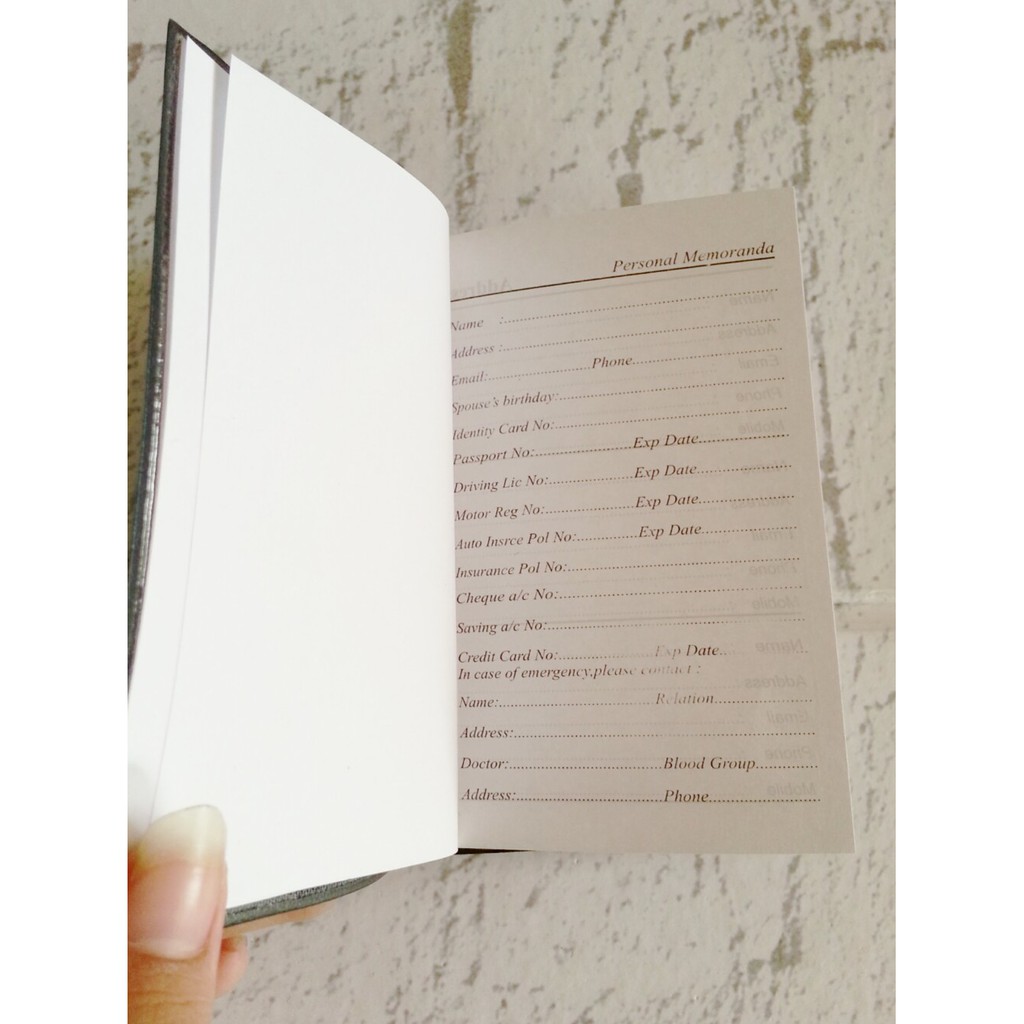 Personal Memoranda
Name :
Address :
Email: Phone
Spouse's birthday:
Identity Card No:
Passport No: Exp Date
Driving Lic No: Exp Date
Motor Reg No: Exp Date
Auto Insrce Pol No: Exp Date
Insurance Pol No:
Cheque a/c No:
Saving a/c No:
Credit Card No: Exp Date
In case of emergency,please contact :
Name: Relation
Address:
Doctor: Blood Group
Address: Phone